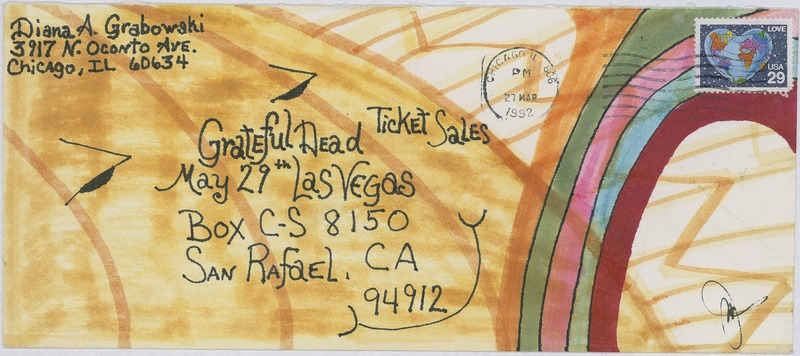 Diana A. Grabowski
3917 N. Oconto Ave.
Chicago, IL 60634
CHICAGO IL 606
PM
27 MAR
1992
LOVE
USA
29
Grateful Dead Ticket Sales
May 29th Las Vegas
Box C-S 8150
San Rafael, CA
94912